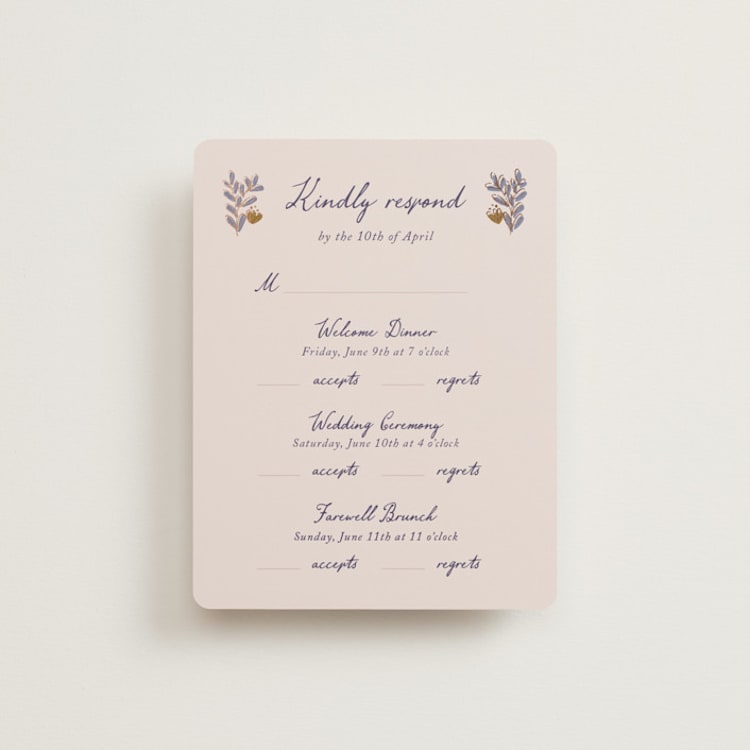 Kindly respond
by the 10th of April
M
Welcome Dinner
Friday, June 9th at 7 o'clock
accepts regrets
Wedding Ceremony
Saturday, June 10th at 4 o'clock
accepts regrets
Farewell Brunch
Sunday, June 11th at 11 o'clock
accepts regrets